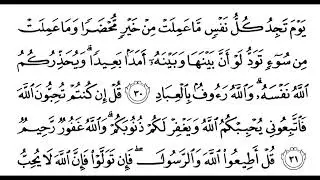 يَوْمَ تَجِدُ كُلُّ نَفْسٍ مَّا عَمِلَتْ مِنْ خَيْرٍ مُّحْضَرًا وَمَا عَمِلَتْ
مِن سُوٓءٍ تَوَدُّ لَوْ أَنَّ بَيْنَهَا وَبَيْنَهُۥٓ أَمَدًۢا بَعِيدًا ۗ وَيُحَذِّرُكُمُ
ٱللَّهُ نَفْسَهُۥ ۗ وَٱللَّهُ رَءُوفٌۢ بِٱلْعِبَادِ ٣٠ قُلْ إِن كُنتُمْ تُحِبُّونَ ٱللَّهَ
فَٱتَّبِعُونِى يُحْبِبْكُمُ ٱللَّهُ وَيَغْفِرْ لَكُمْ ذُنُوبَكُمْ ۗ وَٱللَّهُ غَفُورٌ رَّحِيمٌ
٣١ قُلْ أَطِيعُوا۟ ٱللَّهَ وَٱلرَّسُولَ ۖ فَإِن تَوَلَّوْا۟ فَإِنَّ ٱللَّهَ لَا يُحِبُّ